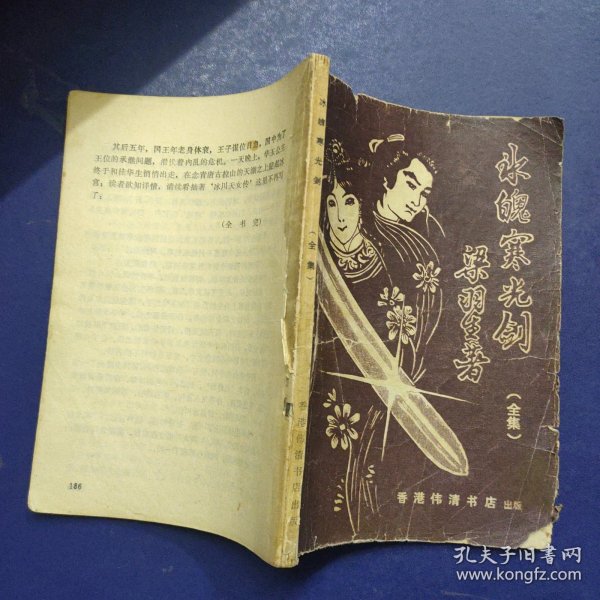 其后五年,国王年老身体衰,王子谋位日急,国中为了
王位的承继问题,潜伏着内乱的危机。一天晚上,华玉公主
终于和桂华生悄悄出走,在念青唐古拉山的天湖之上筑起冰
宫;读者欲知详情,请续看拙著“冰川天女传”这里不再写
了;
(全书完)
186
冰魄寒光剑
(全集)
香港伟清书店出版
冰魄寒光剑
梁羽生著
(全集)
香港伟清书店 出版
孔夫子旧书网
www.kongfz.com